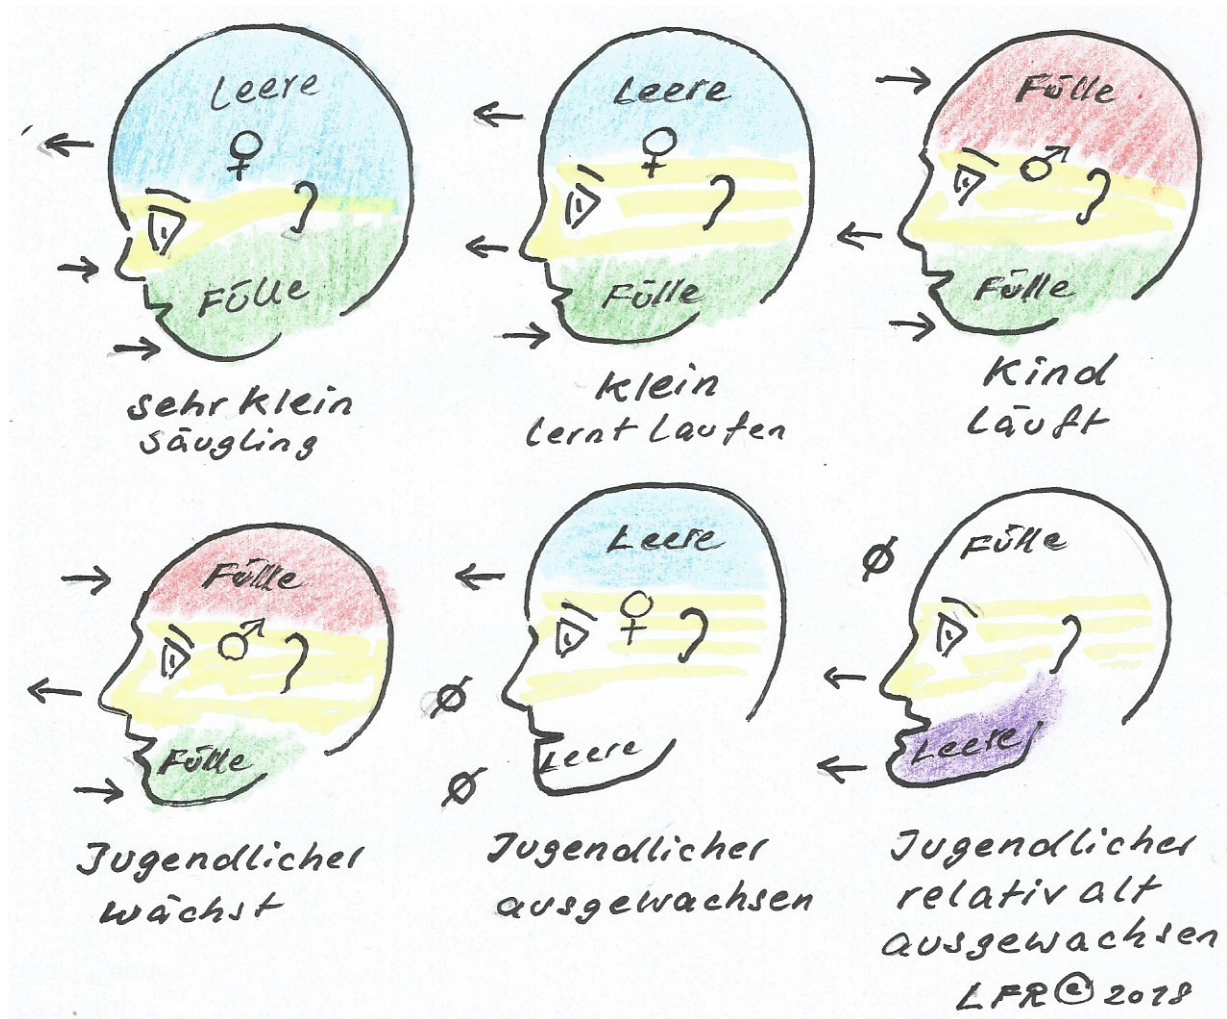 Leere
♀
Fülle
sehr klein
Säugling
Leere
♀
Fülle
klein
lernt laufen
Fülle
♂
Fülle
Kind
läuft
Fülle
♂
Fülle
Jugendlicher
wächst
Leere
♀
Leere
Jugendlicher
ausgewachsen
Fülle
Leere
Jugendlicher
relativ alt
ausgewachsen
LFR © 2018